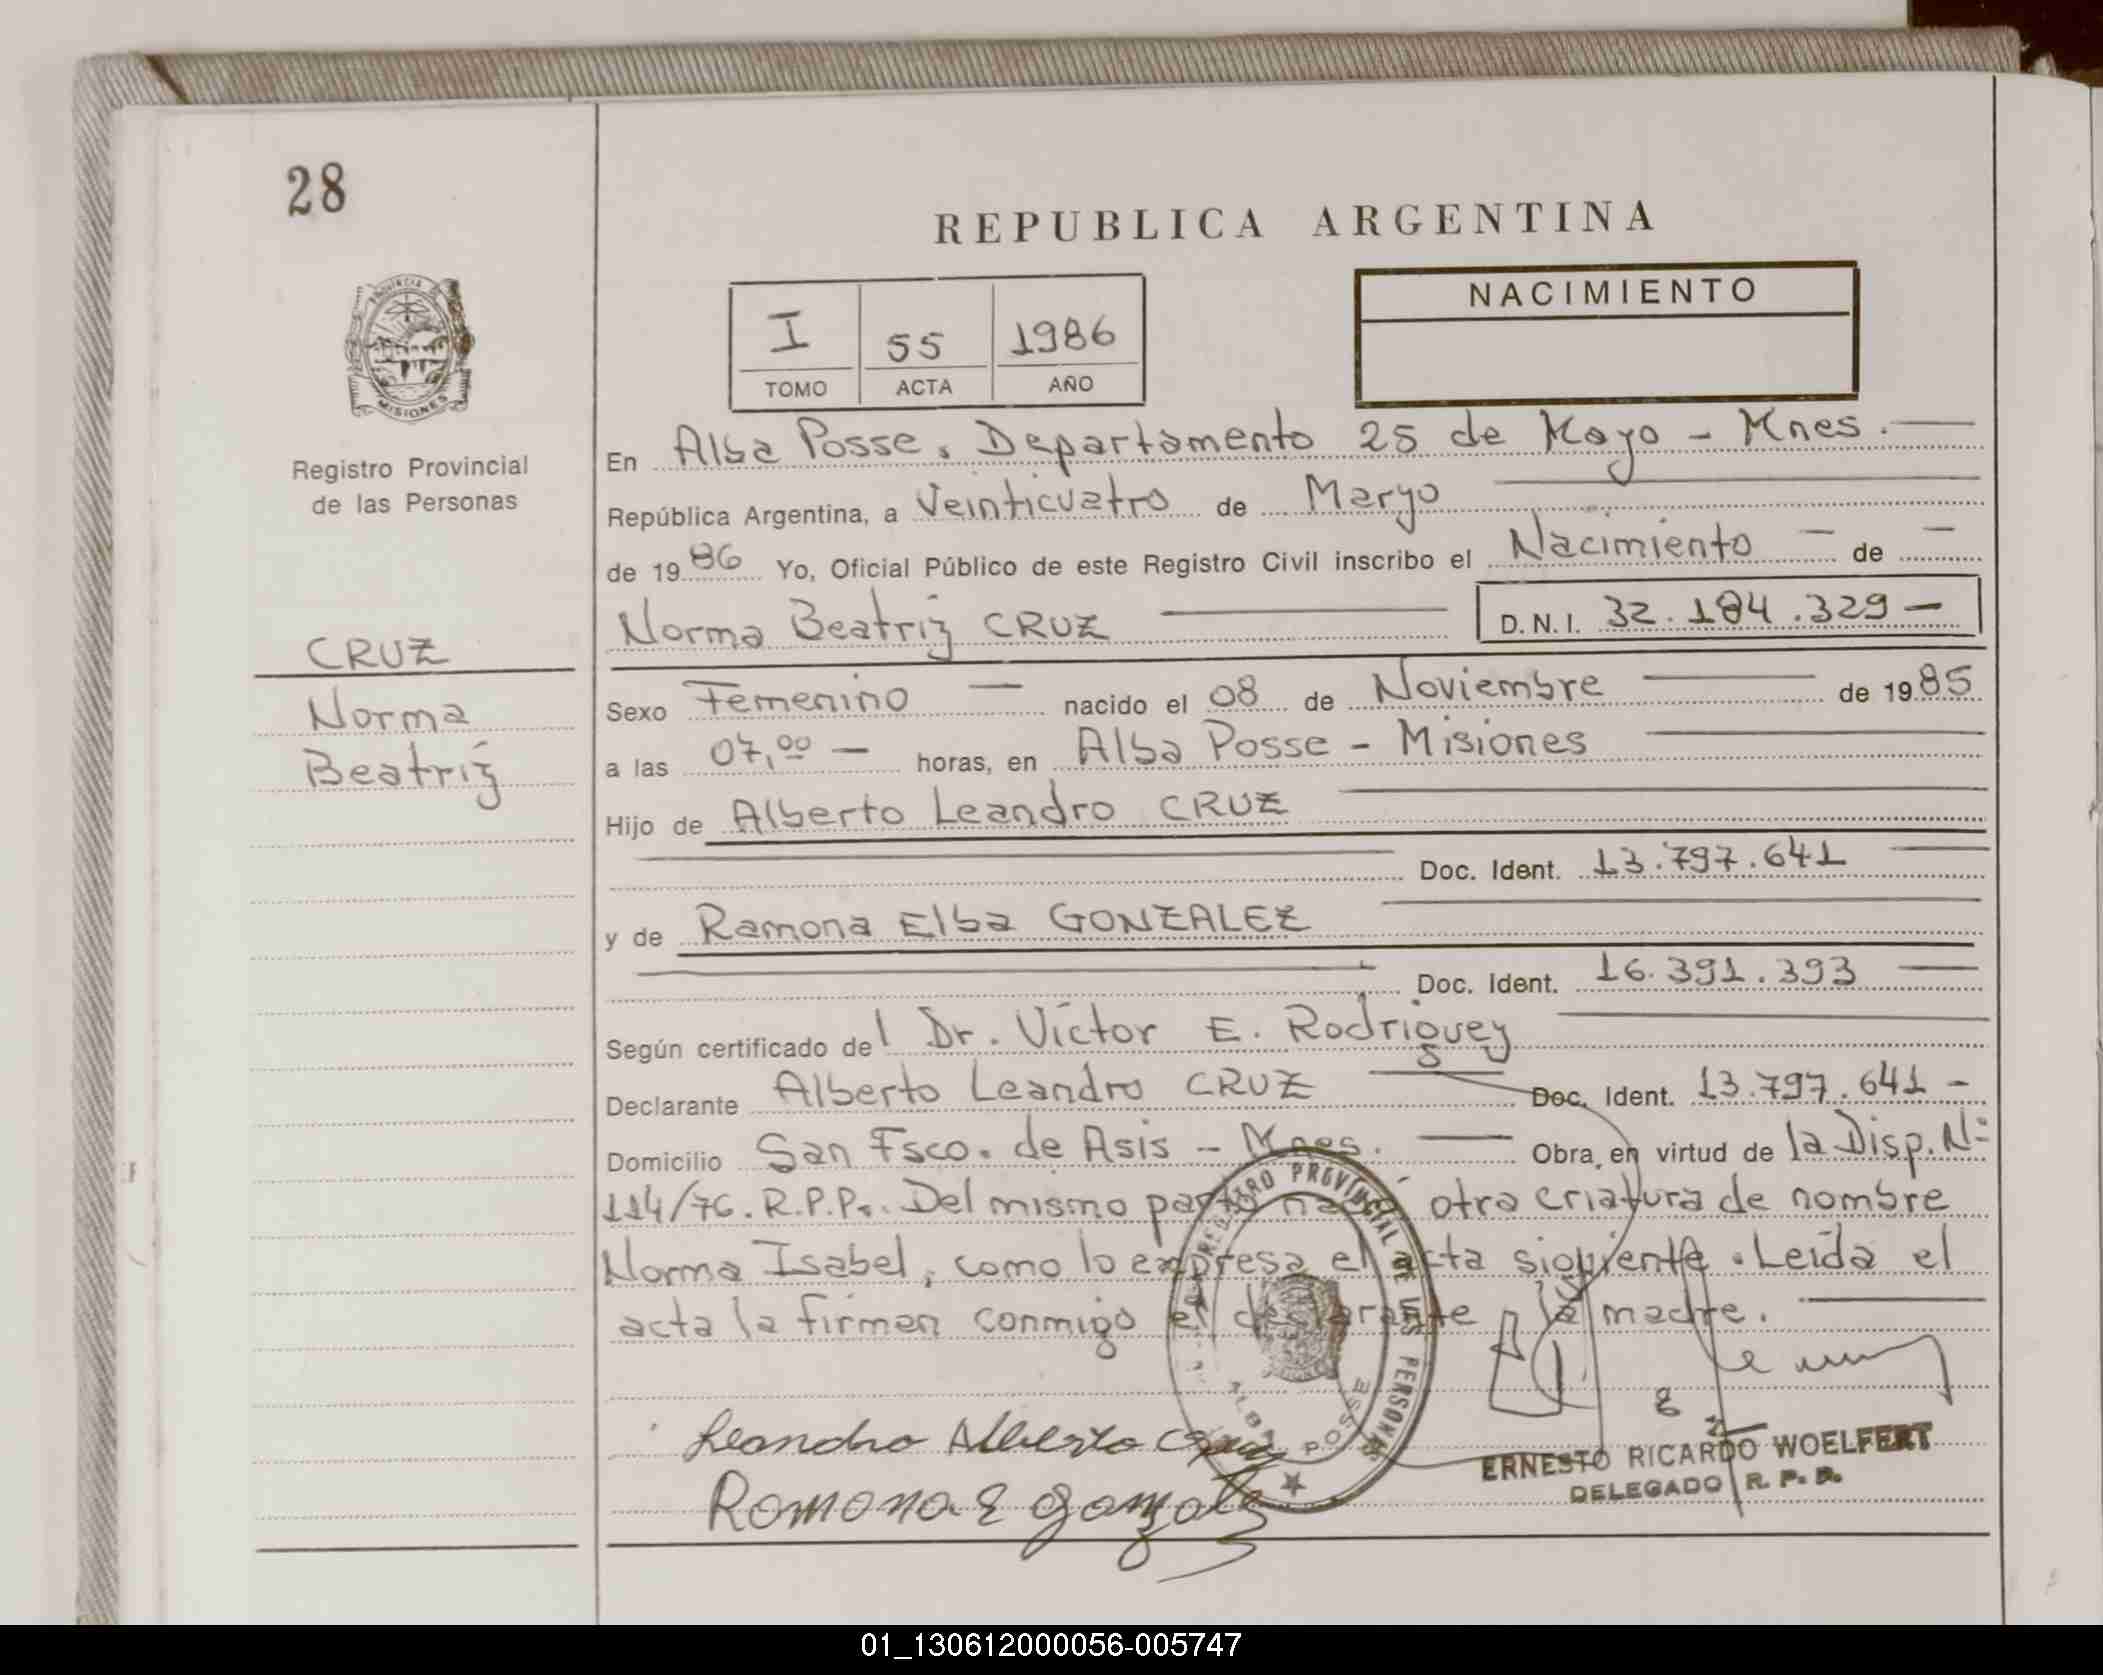 28
REPUBLICA ARGENTINA
PROVINCIA DE
MISIONES
Registro Provincial
de las Personas
I 55 1986
TOMO ACTA AÑO
NACIMIENTO
En Alba Posse, Departamento 25 de Mayo - Mnes.
República Argentina, a Veinticuatro de Marzo
de 1986 Yo, Oficial Público de este Registro Civil inscribo el Nacimiento - de -
Norma Beatriz CRUZ D.N.I. 32.184.329-
CRUZ
Norma
Beatriz
Sexo Femenino - nacido el 08 de Noviembre de 1985
a las 07,00 - horas, en Alba Posse - Misiones
Hijo de Alberto Leandro CRUZ
Doc. Ident. 13.797.641
y de Ramona Elba GONZALEZ
Doc. Ident. 16.391.393
Según certificado del Dr. Víctor E. Rodriguez
Declarante Alberto Leandro CRUZ Doc. Ident. 13.797.641-
Domicilio San Fsco. de Asis - Mnes. Obra en virtud de la Disp. Nº
114/76. R.P.P.. Del mismo parto nació otra criatura de nombre
Norma Isabel, como lo expresa el acta siguiente. Leída el
acta la firman conmigo el declarante la madre.
REGISTRO PROVINCIAL DE LAS PERSONAS
ALBA POSSE
Leandro Alberto Cruz
Ramona E Gonzalez
ERNESTO RICARDO WOELFERT
DELEGADO R. P. P.
01_130612000056-005747